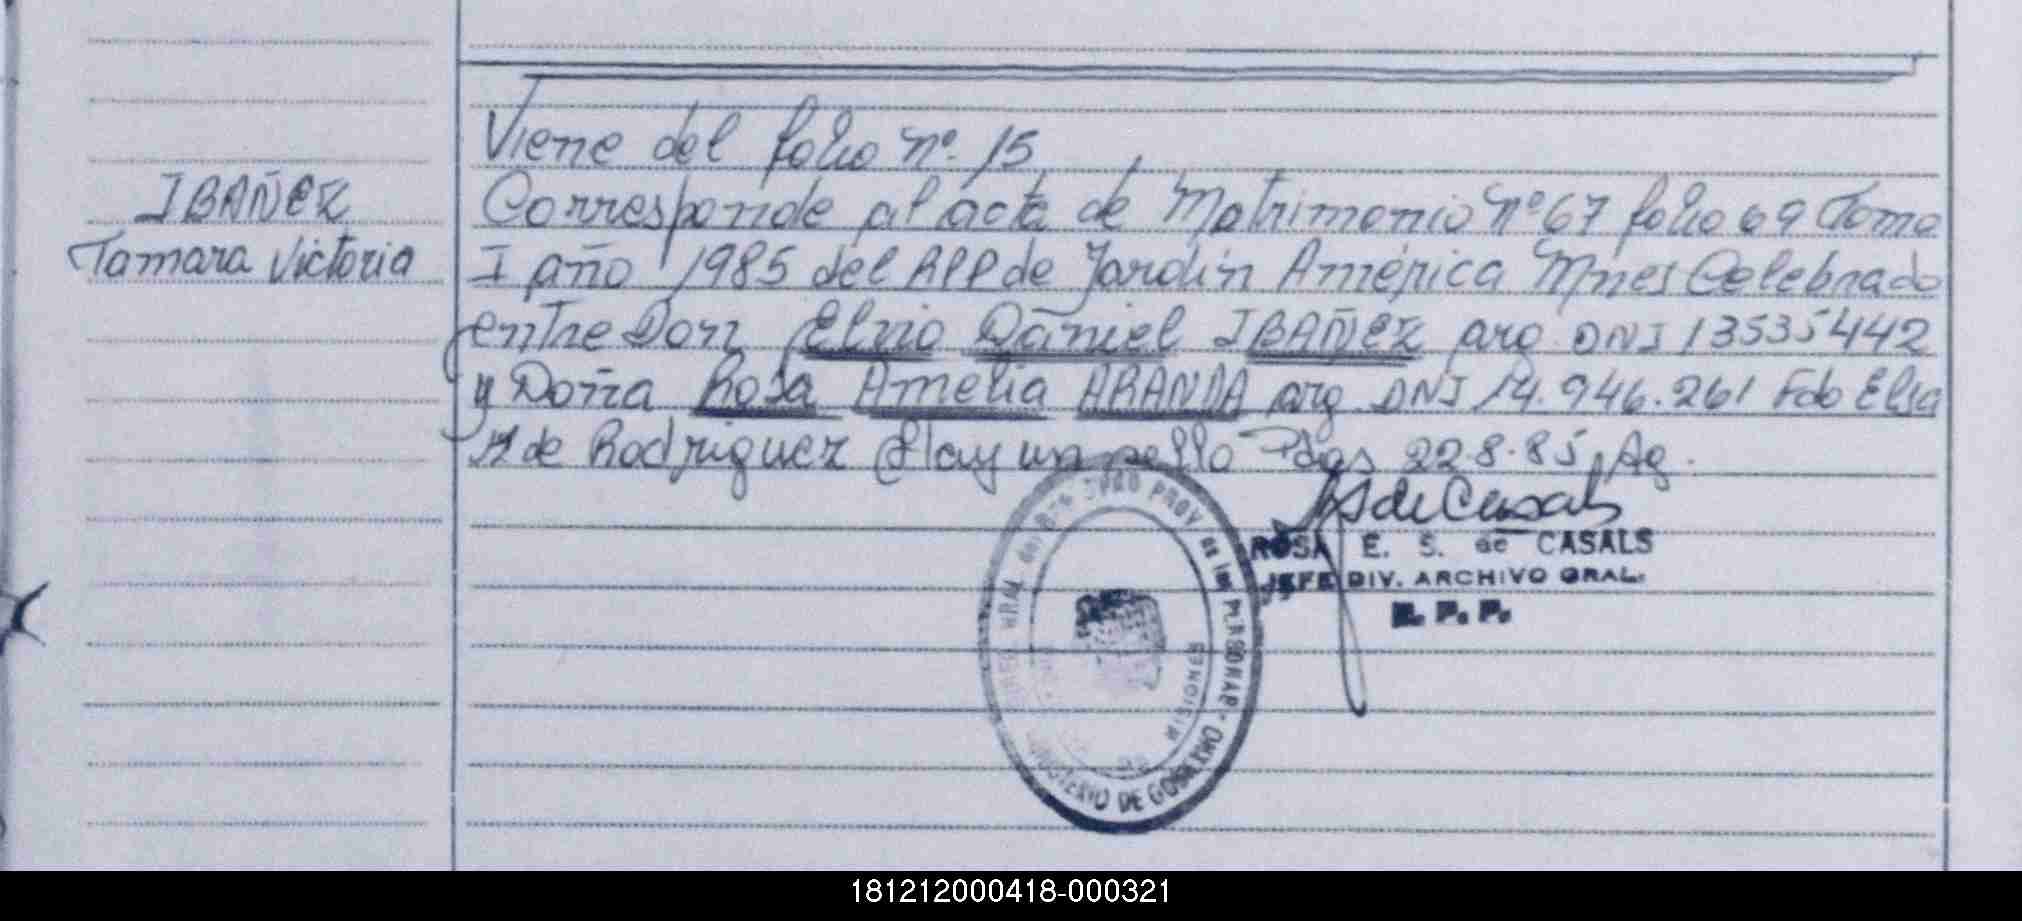 IBAÑEZ
Tamara Victoria
Viene del folio nº 15
Corresponde al acta de Matrimonio nº 67 folio 69 Tomo
I año 1985 del RPP de Jardín América Mnes Celebrado
entre Don Elvio Daniel IBAÑEZ arg DNI 13535442
y Doña Rosa Amelia ARANDA arg DNI 14.946.261 Fdo Elsa
de Rodriguez Hay un sello Pdas 22.8.85 Ag.
ROSA E. S. de CASALS
JEFE DIV. ARCHIVO GRAL.
R. P. P.
PROV de las PERSONAS
MINISTERIO DE GOBIERNO
MISIONES
181212000418-000321